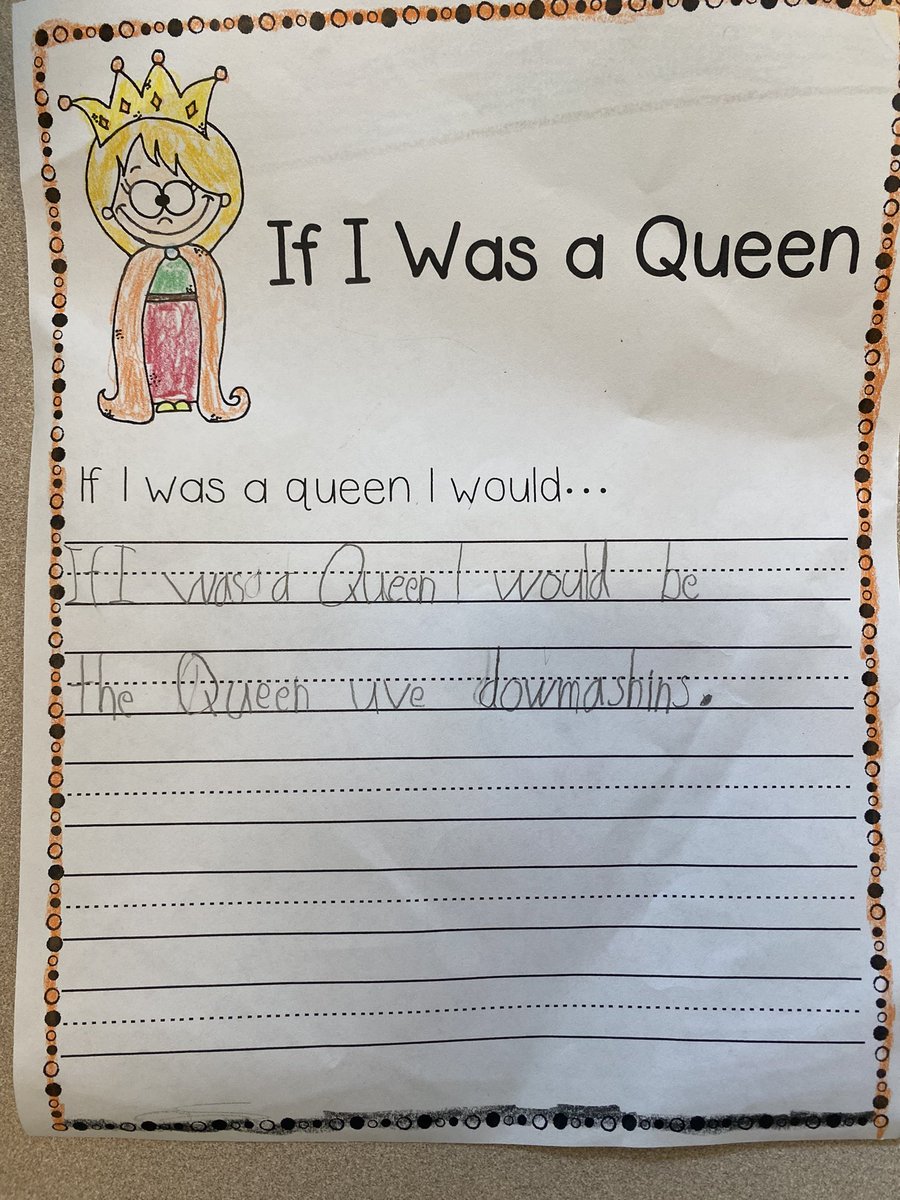 If I Was a Queen
If I was a queen I would...
If I was a Queen I would be
the Queen uve dowmashins.